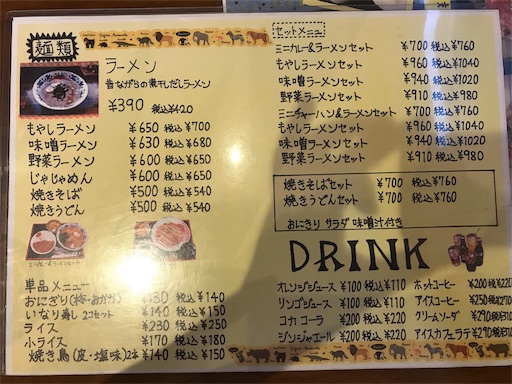 麺類
ラーメン
昔ながらの煮干しだしラーメン
¥390 税込¥420
もやしラーメン ¥650 税込¥700
味噌ラーメン ¥630 税込¥680
野菜ラーメン ¥600 税込¥650
じゃじゃめん ¥600 税込¥650
焼きそば ¥500 税込¥540
焼きうどん ¥500 税込¥540
ミニカレー&ラーメンセット
単品メニュー
おにぎり(梅・おかか) ¥130 税込¥140
いなり寿し 2コセット ¥140 税込¥150
ライス ¥230 税込¥250
小ライス ¥170 税込¥180
焼き鳥(皮・塩味)2本 ¥140 税込¥150
セットメニュー
ミニカレー&ラーメンセット ¥700 税込¥760
もやしラーメンセット ¥960 税込¥1040
味噌ラーメンセット ¥940 税込¥1020
野菜ラーメンセット ¥910 税込¥980
ミニチャーハン&ラーメンセット ¥700 税込¥760
もやしラーメンセット ¥960 税込¥1040
味噌ラーメンセット ¥940 税込¥1020
野菜ラーメンセット ¥910 税込¥980
焼きそばセット ¥700 税込¥760
焼きうどんセット ¥700 税込¥760
おにぎり サラダ 味噌汁付き
DRINK
オレンジジュース ¥100 税込¥110 ホットコーヒー ¥200 税込¥220
リンゴジュース ¥100 税込¥110 アイスコーヒー ¥250 税込
コカコーラ ¥200 税込¥220 クリームソーダ ¥290 税込
ジンジャエール ¥200 税込¥220 アイスカフェラテ ¥290 税込